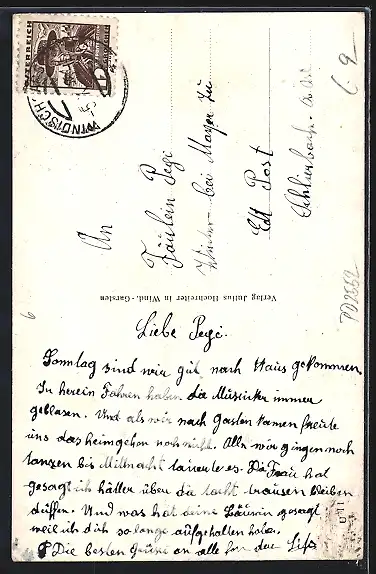 ÖSTERREICH
WINDISCH
An
Fräulein Pegi
bei Mayer zu
Ed Post
Schlierbach
Verlag Julius Hochreiter in Wind.-Garsten
PD2552
6
Liebe Pegi.
Sonntag sind wir gut nach Haus gekommen
In herein Fahren haben die Musiker immer
geblasen. Und als wir nach Garsten kamen freute
uns das heimgehen noch nicht. Alle wir gingen noch
tanzen bis Mitnacht dauerte es. Die Frau hat
gesagt ich hätte über die Nacht drausen bleiben
dürfen. Und was hat deine Bäurin gesagt
weil ich dich so lange aufgehalten habe.
Die besten Grüße an alle von der Lisi